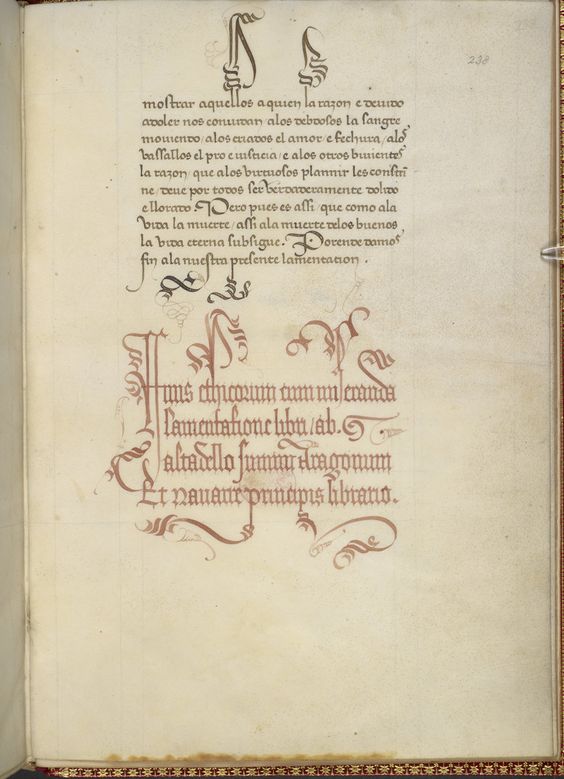 238
mostrar aquellos a quien la razon e devido
adoler nos conuidan / alos debdosos la sangre
moviendo / alos criados el amor e fechura / alos
vassallos el pro e iusticia / e alos otros biuientes
la razon / que alos virtuosos plannir les constri
ne / deue por todos ser verdaderamente dolido
e llorado. Pero pues es assi / que como ala
vida la muerte / assi ala muerte delos buenos
la vida eterna subsigue. Porende damos
fin ala nuestra presente lamentation.
Finis ethicorum cum miseranda
lamentatione libri / ab.
altadello summi Aragonum
Et Nauarre principis librario.